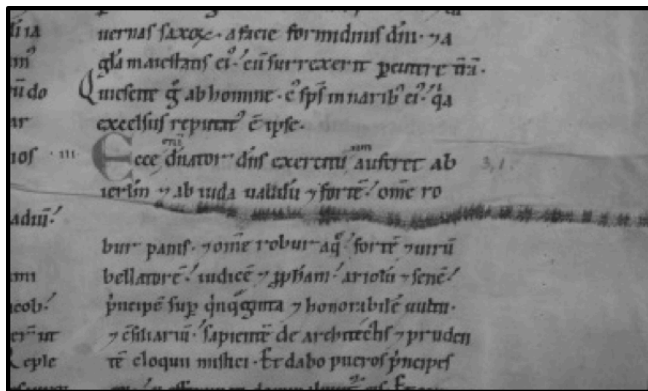 uernas saxoꝝ · a facie formidinis dn̄i · ⁊ a
gl̄a maiestatis ei᾽ · cū surrexerit ꝑcutere t̄rā ·
rū do Quiescite g̊ ab homine · c᾽ sp̄s in narib᾽ ei᾽ · q̇a
ar excelsus reputat᾽ ē ipse ·
ios · · iii · Ecce eni dn̄ator dn̄s exercituū auferet ab 3, 1.
ierl̄m ⁊ ab iuda ualidū ⁊ fortē · om̄e ro
adiū ·
bur panis · ⁊ om̄e robur aq̄ · fortē ⁊ uirū
bellatorē · iudicē ⁊ ꝓph̄am · ariolū ⁊ senē ·
cob · p̍ncipē suꝑ q̍nq̄ginta ⁊ honorabilē uultu ·
er̄ ut ⁊ c̄siliariū · sapientē de architectis ⁊ pruden
Reple tē eloquii mistici · Et dabo pueros p̍ncipes